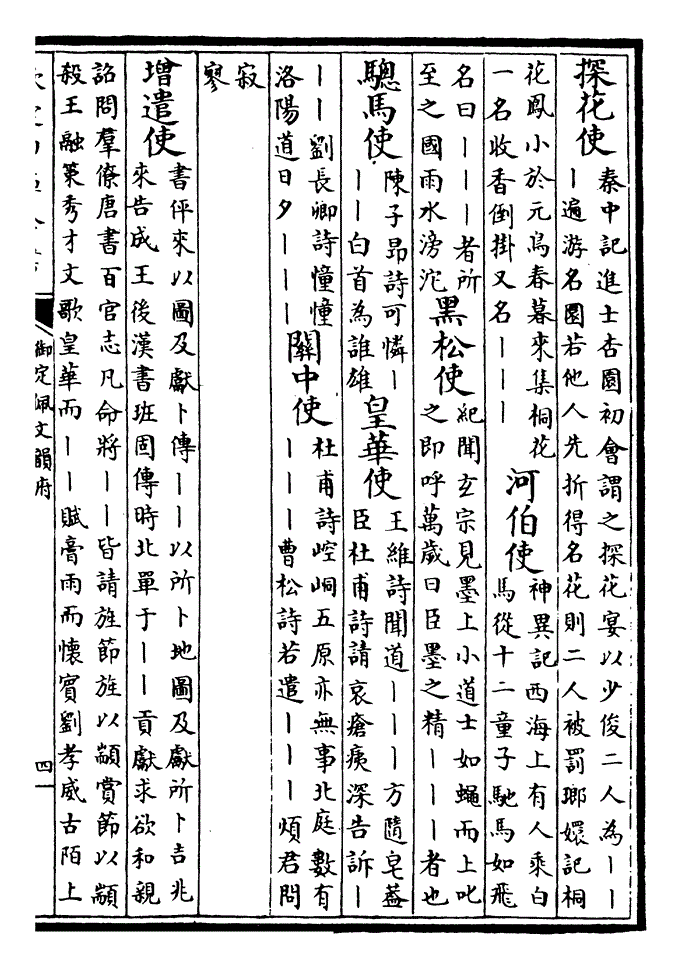 探花使秦中記進士杏園初會謂之探花宴以少俊二人為丨丨
丨遍游名園若他人先折得名花則二人被罰瑯嬛記桐
花鳳小於元鳥春暮來集桐花
一名收香倒掛又名丨丨丨
河伯使神異記西海上有人乘白
馬從十二童子馳馬如飛
名曰丨丨丨者所
至之國雨水滂沱
黑松使紀聞玄宗見墨上小道士如蠅而上叱
之即呼萬歲曰臣墨之精丨丨丨者也
驄馬使陳子昂詩可憐丨
丨丨白首為誰雄
皇華使王維詩聞道丨丨丨方隨皂蓋
臣杜甫詩請哀瘡痍深告訴丨
丨丨劉長卿詩憧憧
洛陽道日夕丨丨丨
關中使杜甫詩崆峒五原亦無事北庭數有
丨丨丨曹松詩若遣丨丨丨煩君問
寂
寥
增遣使書伻來以圖及獻卜傳丨丨以所卜地圖及獻所卜吉兆
來告成王後漢書班固傳時北單于丨丨貢獻求欲和親
詔問羣僚唐書百官志凡命將丨丨皆請旌節旌以顓賞節以顓
殺王融策秀才文歌皇華而丨丨賦膏雨而懷賓劉孝威古陌上
御定佩文韻府
四